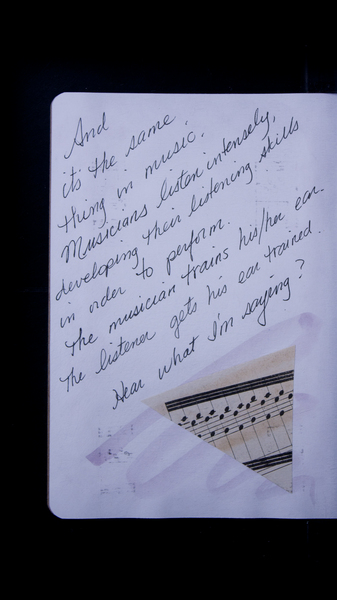 And
it's the same
thing in music.
Musicians listen intensely,
developing their listening skills
in order to perform.
The musician trains his/her ear.
The listener gets his ear trained.
Hear what I'm saying?